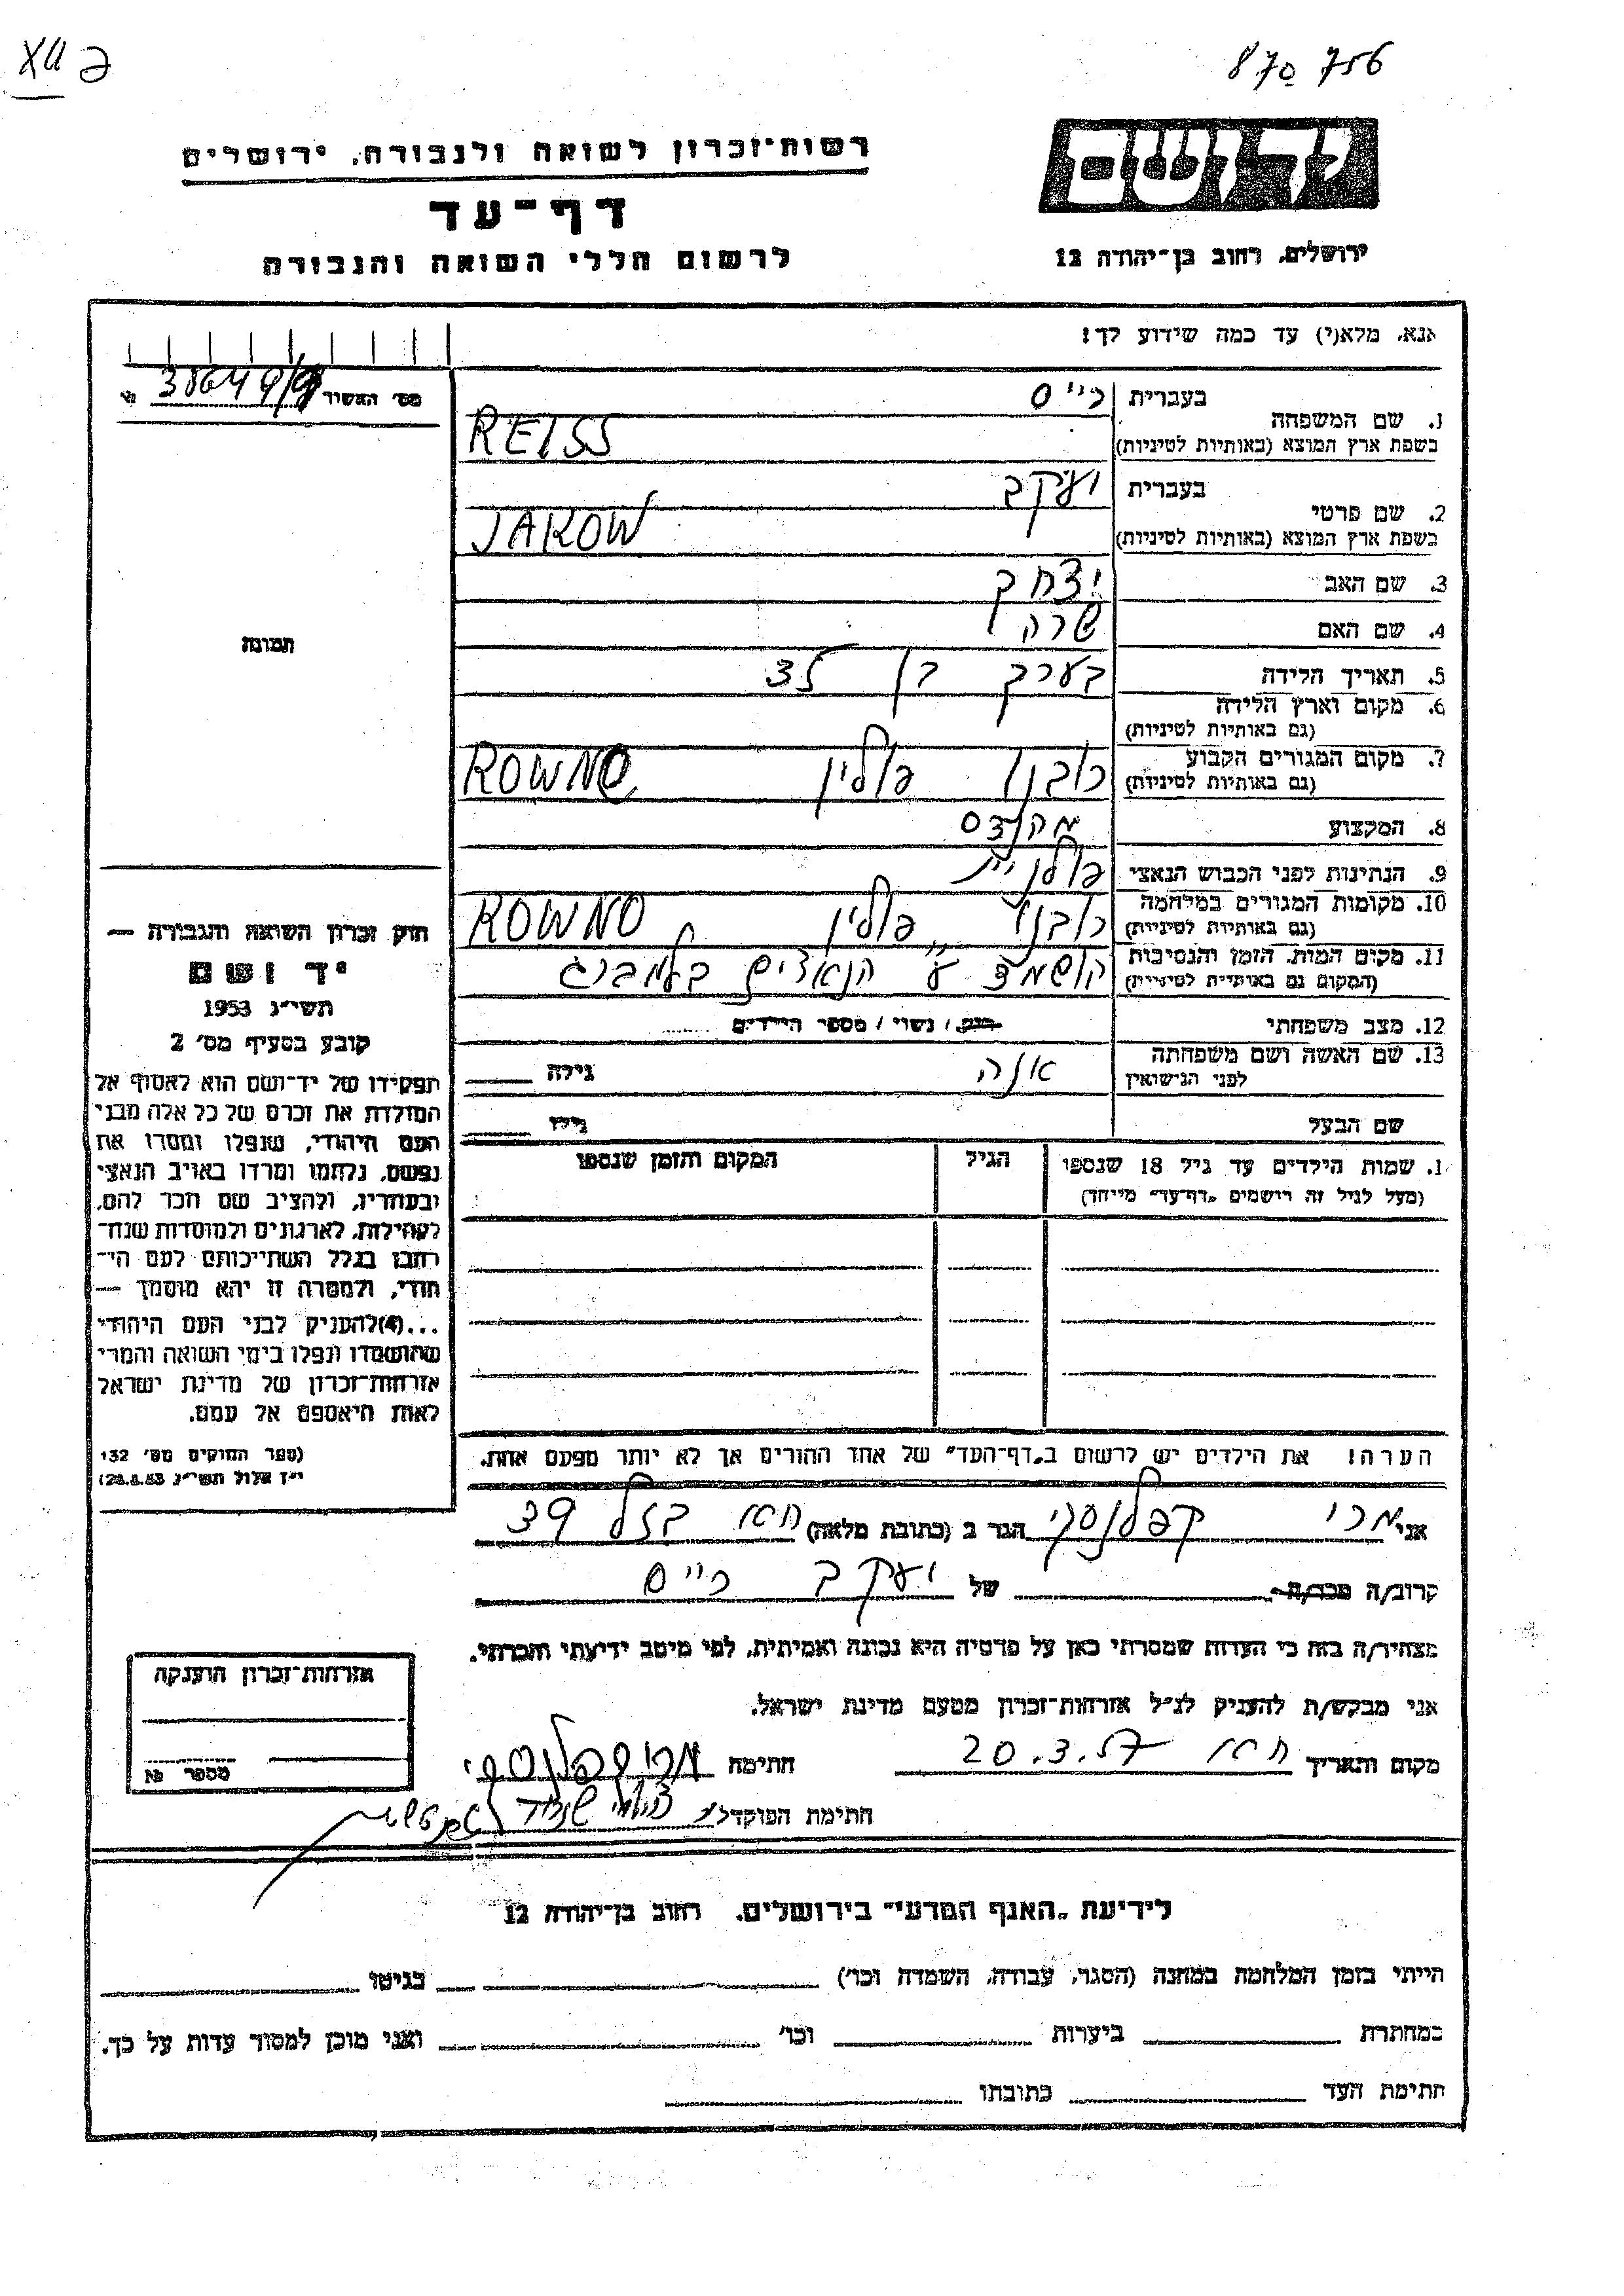 XII ב
870 756
יד ושם
רשות־זכרון לשואה ולגבורה, ירושלים
דף־עד
לרשום חללי השואה והגבורה
ירושלים, רחוב בן־יהודה 12
אנא, מלא(י) עד כמה שידוע לך!
מס׳ האשיר
1. שם המשפחה
בעברית רייס
בשפת ארץ המוצא (באותיות לטיניות) REISS
2. שם פרטי
בעברית יעקב
בשפת ארץ המוצא (באותיות לטיניות) JAKOW
3. שם האב יצחק
4. שם האם שרה
5. תאריך הלידה בערך בן 35
6. מקום וארץ הלידה
(גם באותיות לטיניות)
7. מקום המגורים הקבוע רובנו פולין ROWNO
(גם באותיות לטיניות)
8. המקצוע מהנדס
9. הנתינות לפני הכבוש הנאצי פולנייה
10. מקומות המגורים במלחמה רובנו פולין ROWNO
(גם באותיות לטיניות)
11. מקום המות, הזמן והנסיבות הושמד ע״י הנאצים בלמברג
(המקום גם באותיות לטיניות)
12. מצב משפחתי רווק / נשוי / מספר הילדים
13. שם האשה ושם משפחתה אנה גילה
לפני הנישואין
שם הבעל גילו
1. שמות הילדים עד גיל 18 שנספו הגיל המקום והזמן שנספו
(מעל לגיל זה רישמים „דף־עד״ מייחד)
הערה! את הילדים יש לרשום ב„דף־העד״ של אחד ההורים אך לא יותר מפעם אחת.
תמונה
חוק זכרון השואה והגבורה —
יד ושם
תשי״ג 1953
קובע בסעיף מס׳ 2
תפקידו של יד־ושם הוא לאסוף אל
המולדת את זכרם של כל אלה מבני
העם היהודי, שנפלו ומסרו את
נפשם, נלחמו ומרדו באויב הנאצי
ובעוזריו, ולהציב שם וזכר להם,
לקהילות, לארגונים ולמוסדות שנח־
רבו בגלל השתייכותם לעם הי־
הודי, ולמטרה זו יהא מוסמך —
...(4)להעניק לבני העם היהודי
שהושמדו ונפלו בימי השואה והמרי
אזרחות־זכרון של מדינת ישראל
לאות היאספם אל עמם.
(ספר החוקים מס׳ 132
י״ז אלול תשי״ג 28.8.53)
אני מרי קפלנסקי הגר ב (כתובת מלאה) חפא 39
קרוב/ה מכר/ה של יעקב רייס
מצהיר/ה בזה כי העדות שמסרתי כאן על פרטיה היא נכונה ואמיתית, לפי מיטב ידיעתי והכרתי.
אני מבקש/ת להעניק לנ״ל אזרחות־זכרון מטעם מדינת ישראל.
מקום ותאריך 20.3.57 חתימה מרי קפלנסקי
חתימת הפוקד
אזרחות־זכרון הוענקה
מספר
לידיעת „האגף המדעי״ בירושלים, רחוב בן־יהודה 12
הייתי בזמן המלחמה במחנה (הסגר, עבודה, השמדה וכו׳) בגיטו
במחתרת ביערות וכו׳ ואני מוכן למסור עדות על כך.
חתימת העד כתובתו